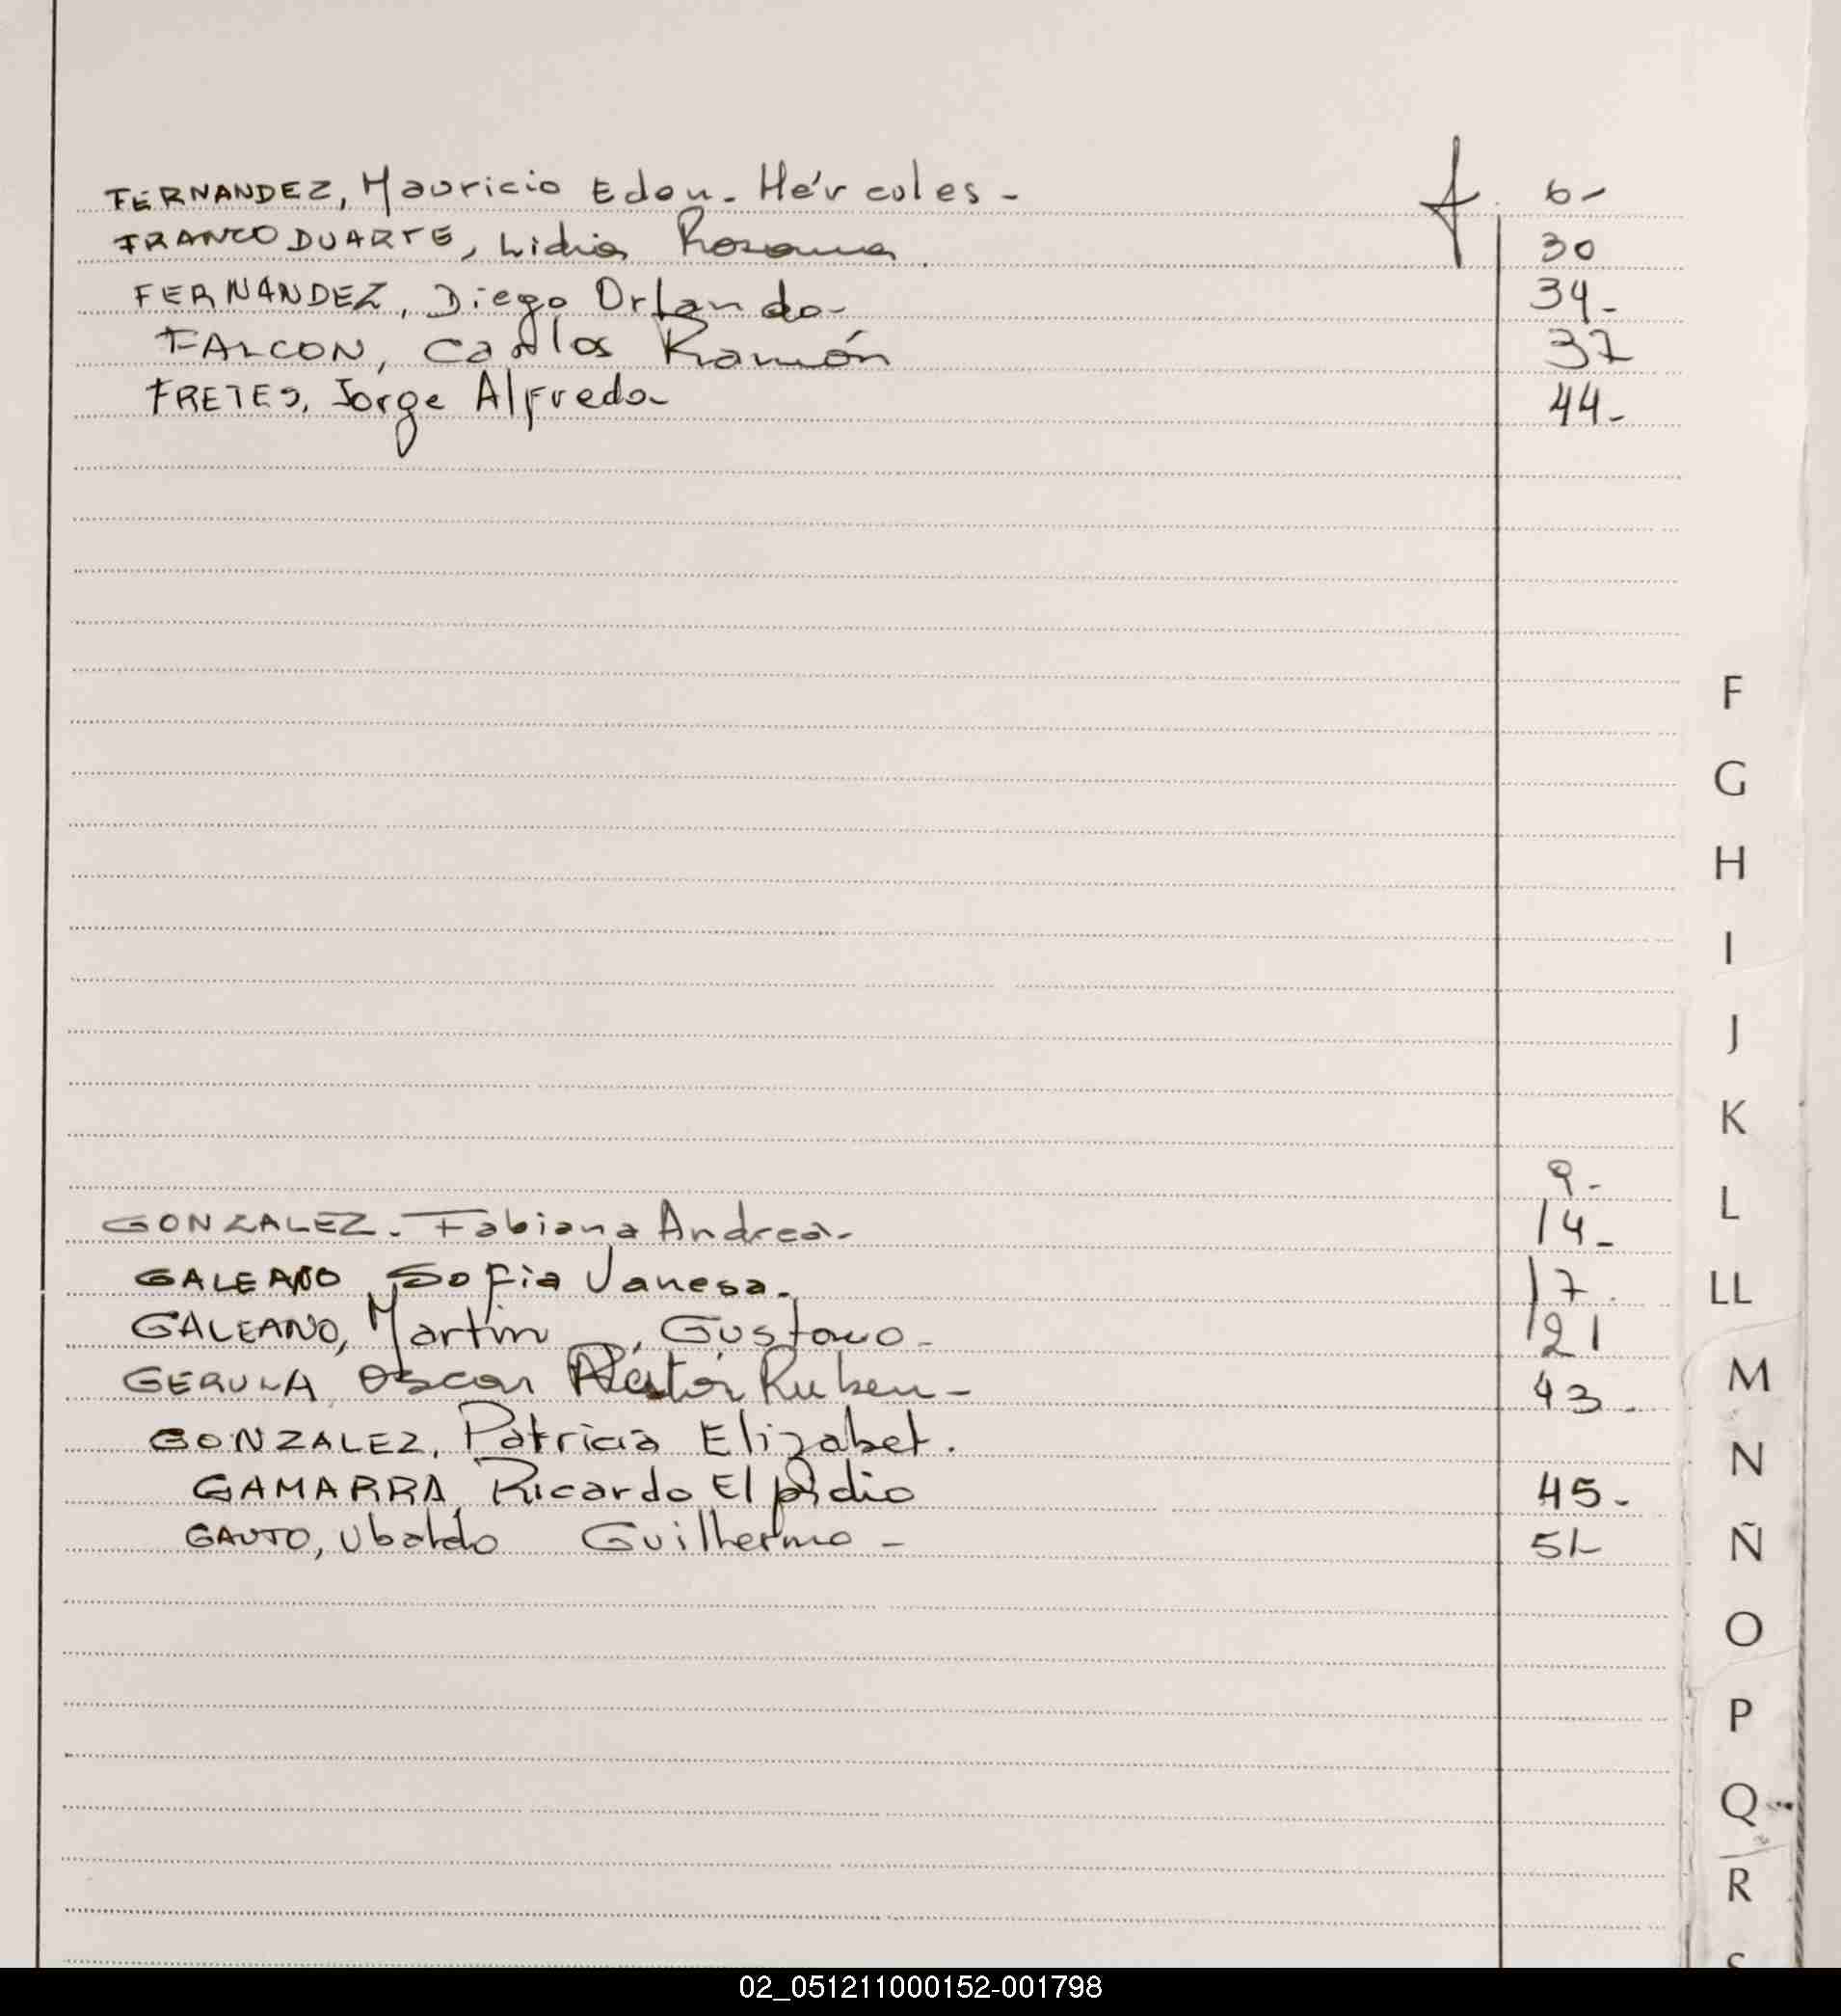 FERNANDEZ, Mauricio Edon - Hércoles - f. 6-
FRANCO DUARTE, Lidia Rosana. 30
FERNANDEZ, Diego Orlando- 34-
FALCON, Carlos Ramón 37
FRETES, Jorge Alfredo- 44-
F
G
H
I
J
K
9-
L
GONZALEZ. Fabiana Andrea- 14-
GALEANO Sofia Vanesa. 17.
LL
GALEANO, Martín, Gustavo- 21
GERULA Oscar Néstor Ruben- 43-
M
GONZALEZ, Patricia Elizabet.
N
GAMARRA, Ricardo Elpidio 45-
GAUTO, Ubaldo Guilhermo - 51-
Ñ
O
P
Q
R
S
02_051211000152-001798